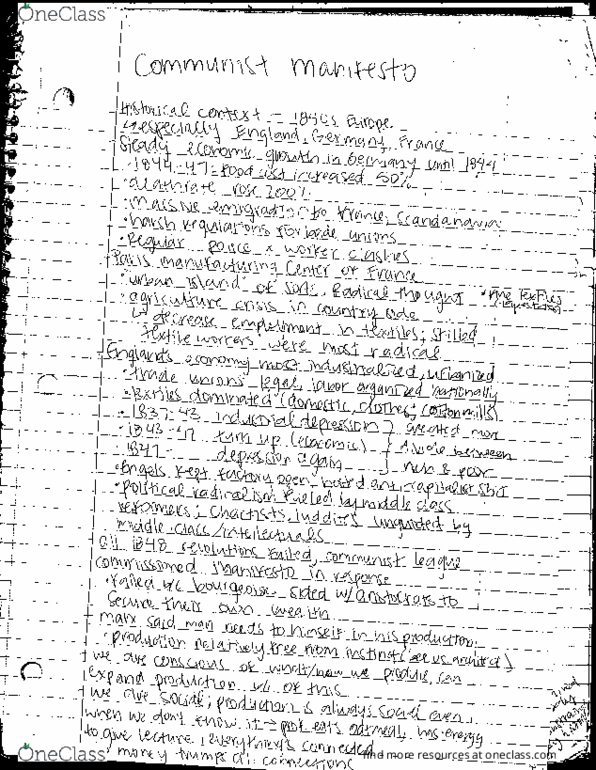 OneClass
Communist manifesto
Historical context - 1840s Europe
especially England, Germany, France
Steady economic growth in Germany until 1844
1844-47: food cost increased 50%
death rate rose 200%
massive emigration to France, Scandanavia
harsh regulations for trade unions
Regular police x worker clashes
Paris manufacturing center of France
urban "island" of sorts. Radical thought
agriculture crisis in country side
decrease employment in textiles; skilled
textile workers were most radical
England's economy most industrialized, urbanized
trade unions legal, labor organized nationally
textiles dominated (domestic, clothes, cotton mills)
1837-43 industrial depression
1843-47 turn up (economic)
1847 depression again
created more
divide between
rich & poor
Engels kept factory open
political radicalism fueled by middle class
reformers; Chartists, luddites unguided by
middle class/intellectuals
all 1848 revolutions failed, communist league
commissioned manifesto in response
failed b/c bourgeoise sided w/ aristocrats to
secure their own wealth
marx said man needs to himself in his production.
production relatively free from instinct (bee vs architect)
we are conscious of what/how we produce, can
expand production b/c of this
we are social; production is always social even
when we don't know it → prof eats oatmeal, has energy
to give lecture, everything's connected
money trumps all connections
OneClass
find more resources at oneclass.com